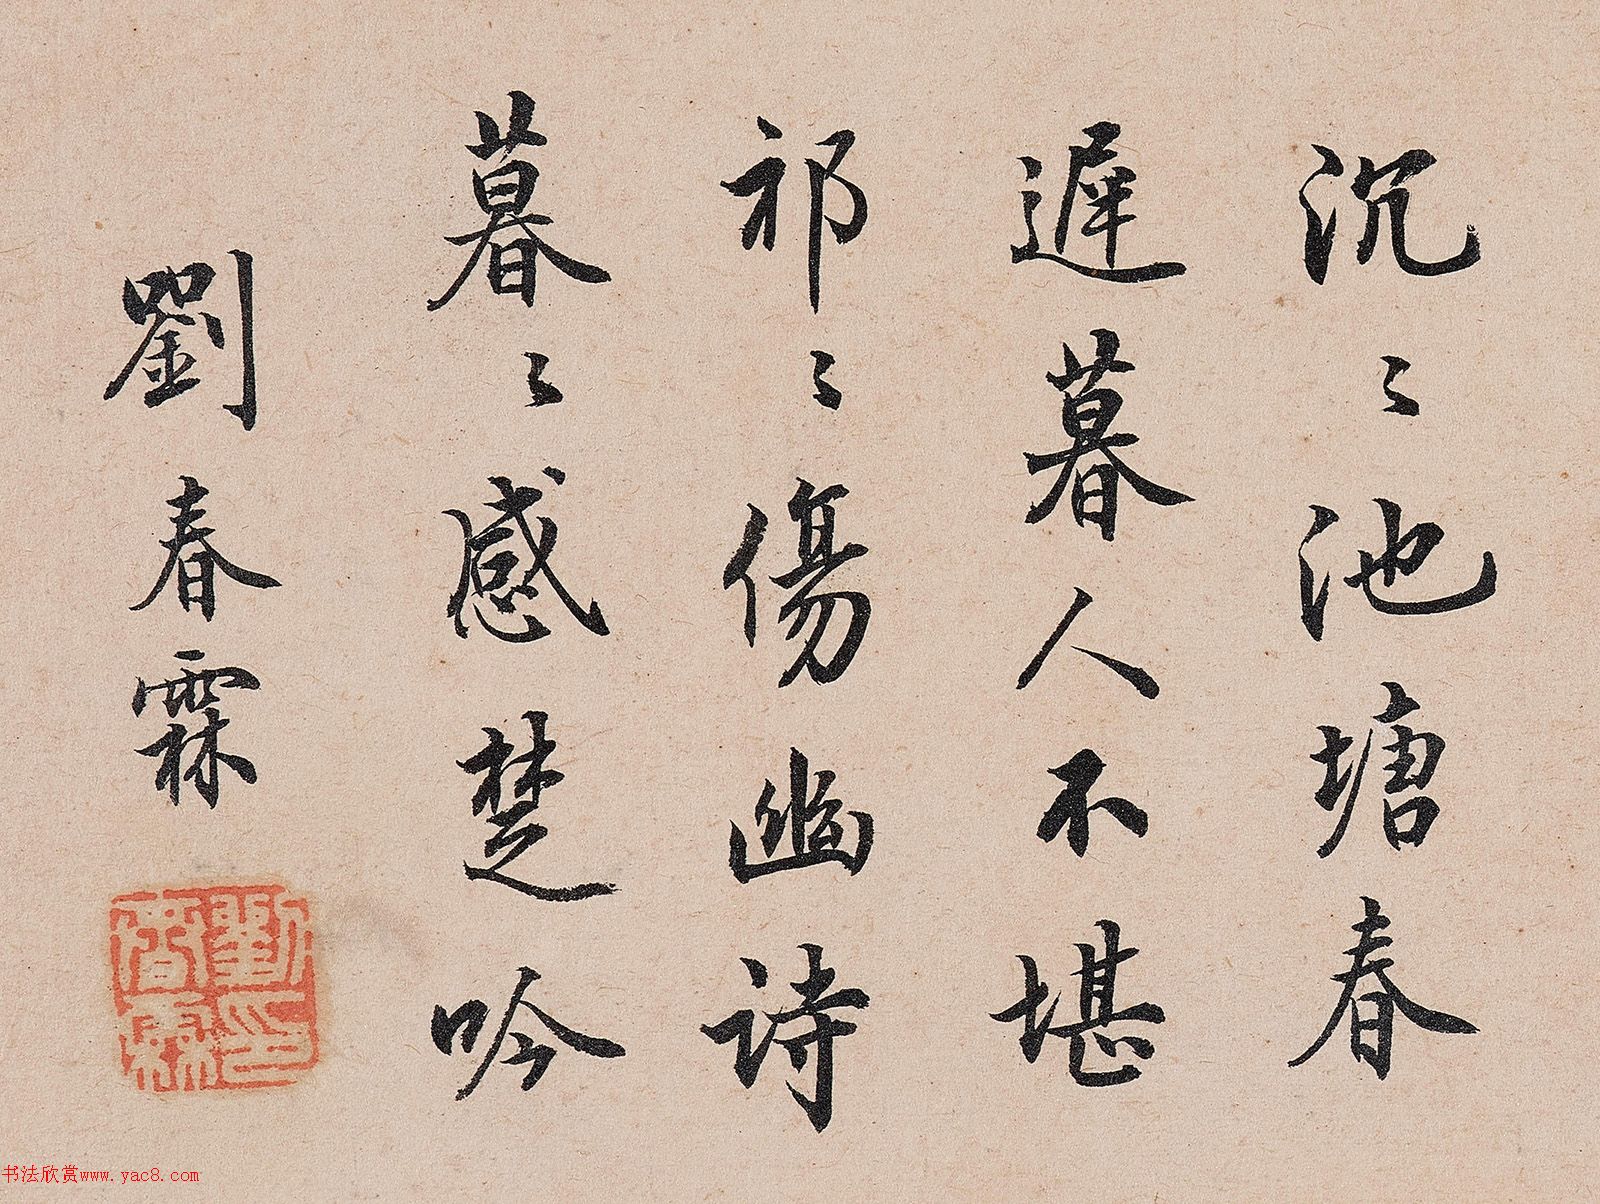 沉〻池塘春
遲暮人不堪
祁〻傷幽詩
暮〻感楚吟
劉春霖
劉春霖印
书法欣赏www.yac8.com